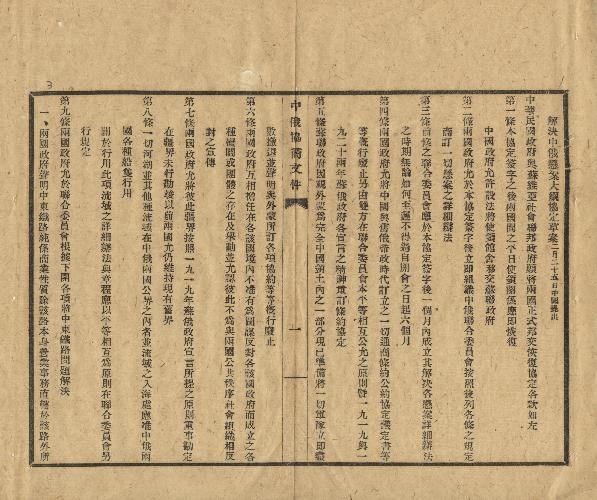 解決中俄懸案大綱協定草案二月二十五日中國提出
中華民國政府與蘇維亞社會聯邦政府願將兩國正式邦交恢復協定各款如左
第一條本協定簽字之後兩國間之平日使領關係應即恢復
中國政府允許設法將使領館舍移交蘇聯政府
第二條兩國政府允於本協定簽字後立即組織中俄聯合委員會按照後列各條之規定
商訂一切懸案之詳細辦法
第三條前條之聯合委員會應於本協定簽字後一個月內成立其解決各懸案詳細辦法
之時期無論如何至遲不得過自開會之日起六個月
第四條兩國政府允將中國與舊俄帝政時代訂立之一切通商條約公約協定議定書等
等概行廢止另由雙方在聯合委員會本平等相互公允之原則暨一九一九與一
九二十兩年蘇俄政府各宣言之精神重訂條約協定
第五條蘇聯政府因視外蒙為完全中國領土內之一部分現已準備將一切軍隊立即盡
中俄協商文件
一
數撤退並聲明與外蒙所訂各項協約等等概行廢止
第六條兩國政府互相擔任在各該國境內不准有為圖謀反對各該國政府而成立之各
種機關或團體之存在及舉動並允認彼此不為與兩國公共秩序社會組織相反
對之宣傳
第七條兩國政府允將彼此疆界按照一九一九年蘇俄政府宣言所提之原則重事勘定
在疆界未行勘竣以前兩國允仍維持現有疆界
第八條一切河湖並其他種流域在中俄兩國公界之內者並流域之入海處應准中俄兩
國各種船隻行用
關於行用此項流域之詳細辦法與章程應以平等相互為原則在聯合委員會另
行規定
第九條兩國政府允於聯合委員會根據下開各項將中東鐵路問題解決
一、兩國政府聲明中東鐵路純係商業性質除該路本身營業事務直轄於該路外所
3